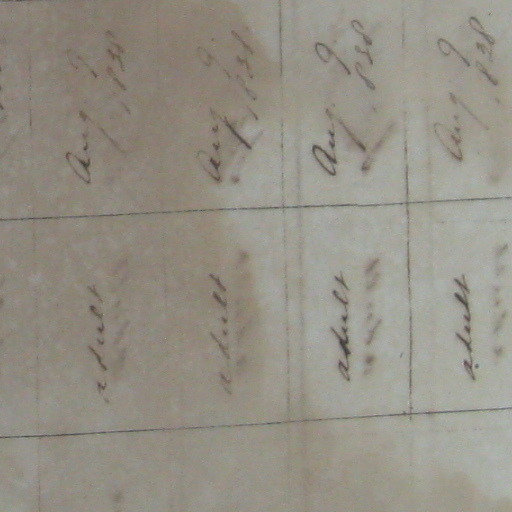 adult Aug 9
1838
adult Aug 9
1838
adult Aug. 9
1838
adult Aug 9
1838.